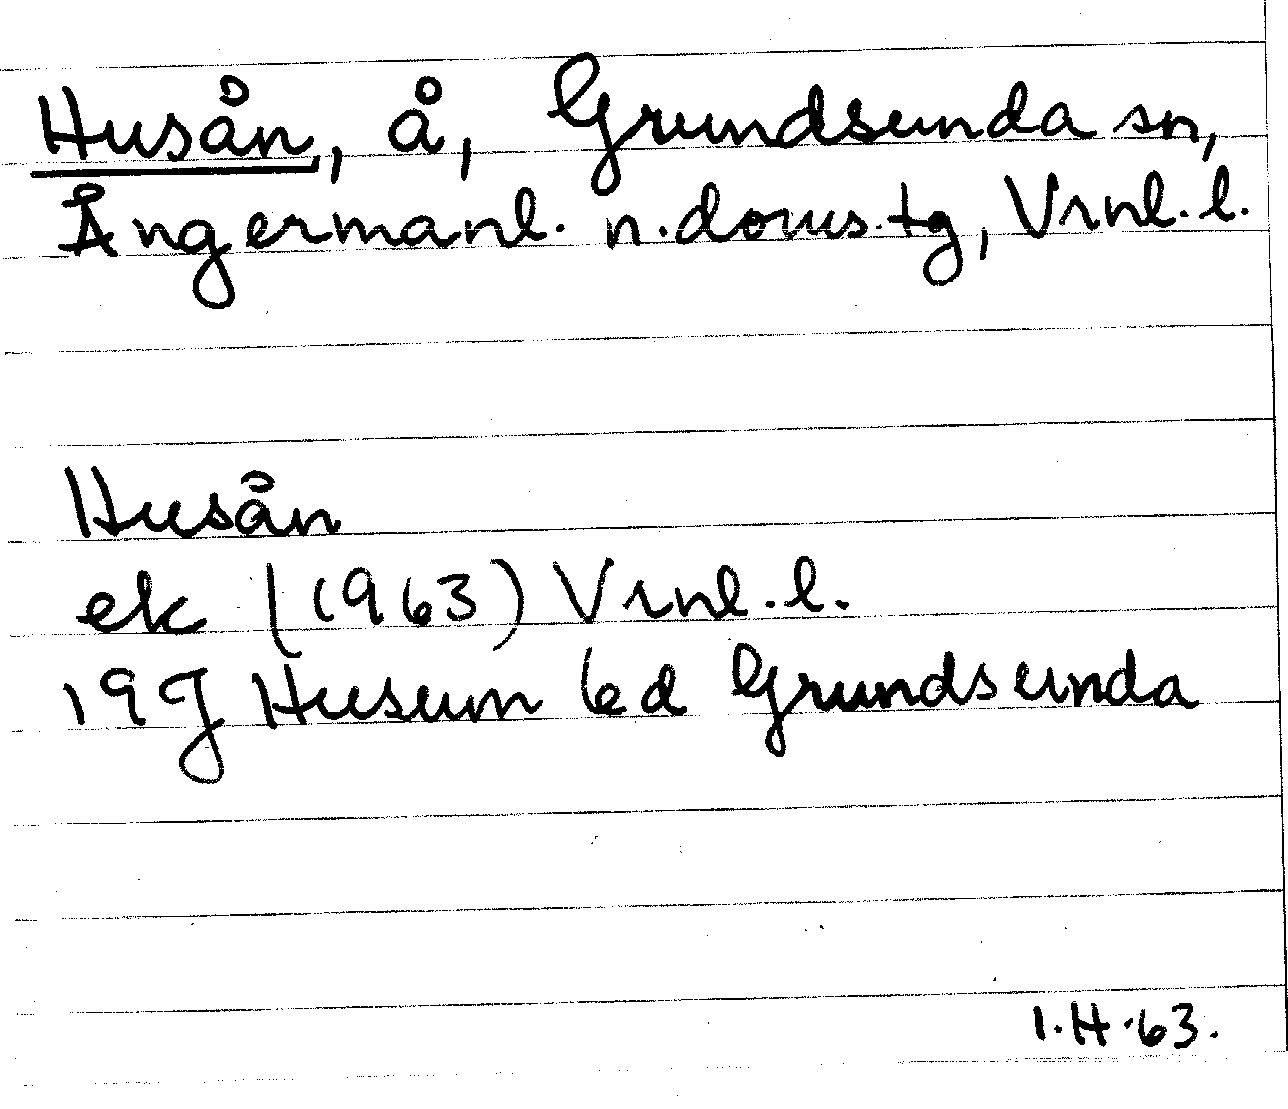 Husån, å, Grundsunda sn,
Ångermanl. n. doms. tg, Vrnl. l.
Husån
ek (1963) Vrnl. l.
19J Husum bd Grundsunda
I.H. 63.